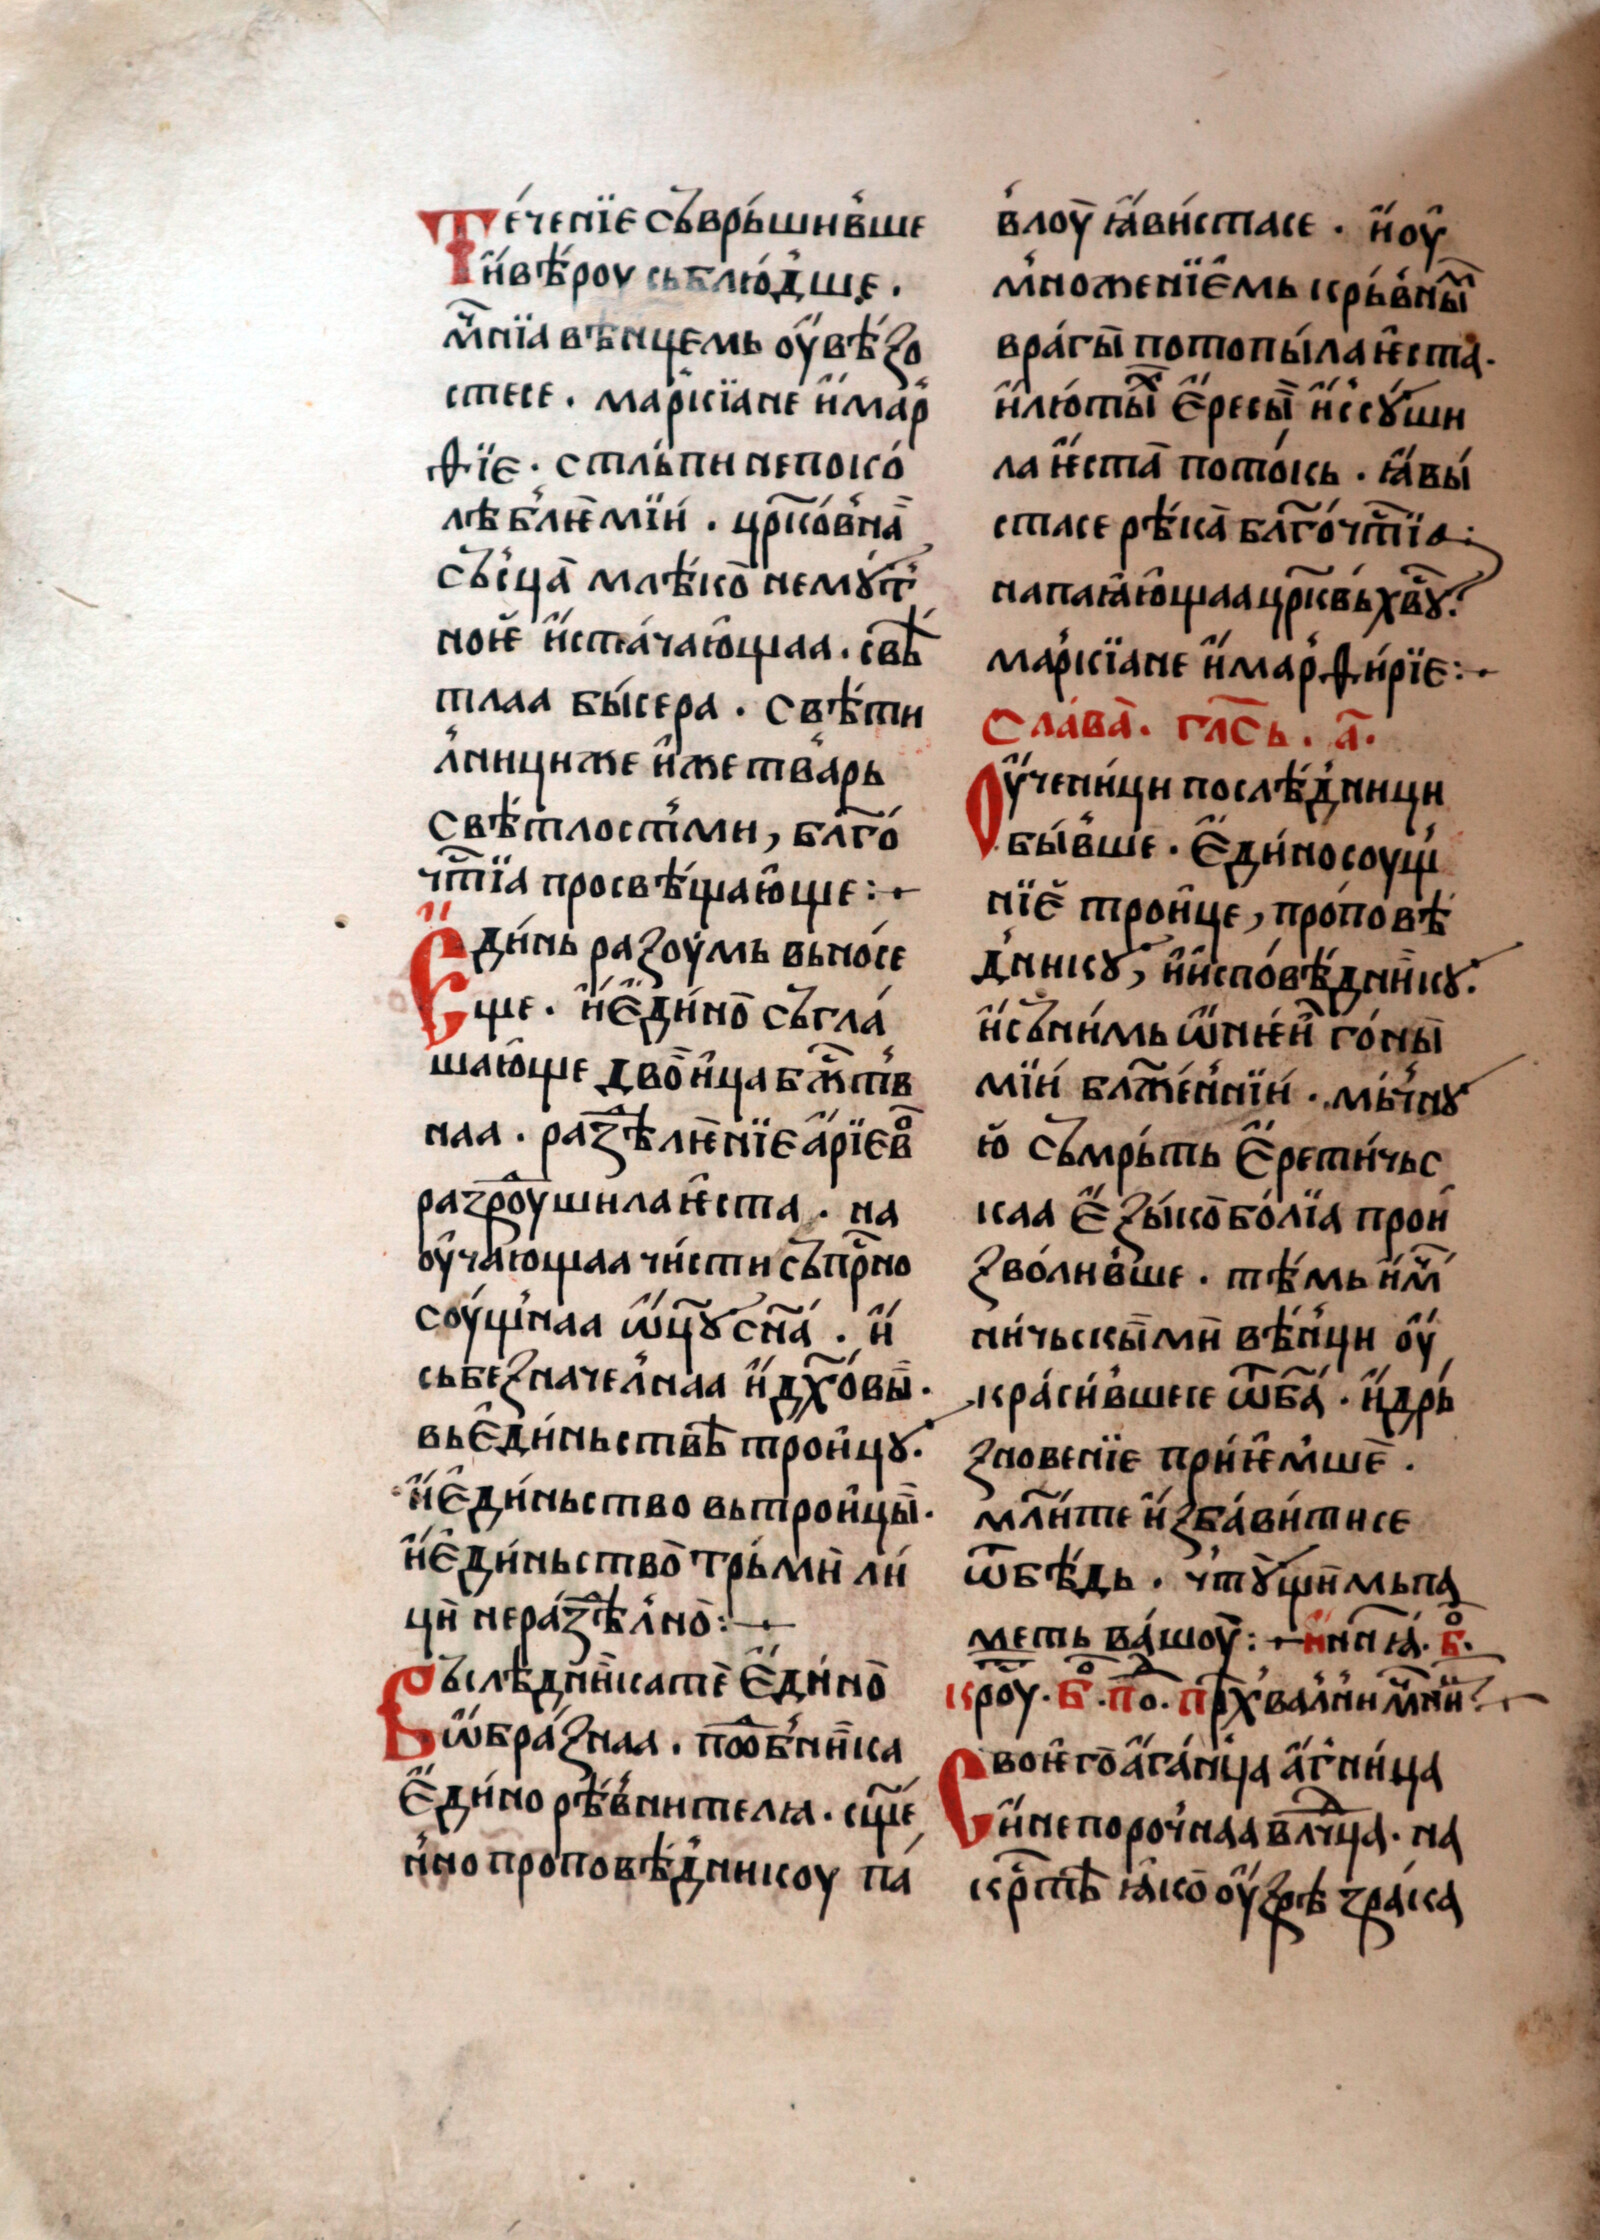 Те́ченїе съврь́шив̾ше
и҆ вѣ́роу сьблю́д̾ше .
м҃чнїа вѣнцемь оу҆вѣ́ꙁо
стесе . мар̾кїане и҆ мар̾
ѳїе . стль́пи непоко́
лѣб̾лѥ́мїи . цр҃ко́в̾наа
съ̾сца̀ млѣ́ко̀ немꙋ́т̾
ноѥ и҆ста́чаю̑щаа . свѣ́
тлаа бы́сера . свѣ́ти
л̾ници же и҆же тва́рь
свѣ́тлост̾ми, бл҃го́
чт҃їа просвѣ́щаю̑ще :
Є҆ди́нь раꙁоу́мь вьно́се
ще . и҆ є҆ди́но̀ съгла́
шаю̑ще двои́ца бж҃тв̾
наа . раꙁ̾дѣлѥ́нїе а҆рїево
раꙁроу́шила ѥ҆ста . на
оу҆ча́ющаа чи́сти съпр҃но
соу́щ̾наа ѿц҃ꙋ сн҃а́ . и҆
сьбеꙁначел̾наа и҆ дх҃о́вы̀ .
вь є҆ди́ньствѣ трои́цꙋ .
и҆ є҆ди́ньство вьтрои́цы̀ .
и҆ є҆ди́ньство̀ трь́мѝ ли́
цѝ нераꙁ̾дѣл̾но̀ :
Въслѣ́д̾ника те є҆ди́но̀
ѡ҆бра́ꙁнаа . подо́б̾ника
є҆ди́но рѣ́в̾нителꙗ . сщ҃е́
н̾но проповѣ́д̾никоу па́
в̾лоу̀ ꙗ҆ви́стасе . и҆ оу҆
м̾ноженїѥ́мь кръ́в̾ны́м
вра́гы̀ потопы́ла ѥ҆ста .
и҆ лю́ты́х є҆ресы́ и҆ссꙋ́ши
ла ѥ҆ста̀ пото́кь . ꙗ҆вы́
стасе рѣ́ка̀ бл҃го́чт҃їа :
напаꙗ҆ю̑щаа цр҃квь х҃вꙋ :
мар̾кїане и҆ мар̾ѳи́рїе :
Сла́ва̀ . гла́сь . а҃ .
Оу҆чени́ци послѣ́д̾ници
бы́в̾ше . є҆ди́носоущ̾
нїе́ трои́це, про́повѣ
д̾никꙋ, и҆ и҆спо́вѣ́дникꙋ .
и҆съни́мь ѡ҆ нѥ́и го́ны̀
мїи́ бл҃же́н̾нїи . мь́чнꙋ
ю̀ съмрь́ть є҆рети́чьс
каа є҆ꙁы́кобо́лїа прои
ꙁво́лив̾ше . тѣ́мь и҆ м҃
ни́чьскы́ми вѣ́н̾ци оу҆
кра́сив̾шесе ѿ б҃а́ . и҆ дрь́
ꙁновенїе прїи́ѥм̾шѐ .
мл҃и́те и҆ꙁба́ви́тисе
ѿ бѣ́дь . чтꙋ́щїимь па
меть ва́шоу̀ : и ни́нꙗ . б҃о .
кр҃оу . б҃о . по . прѣхвал̾ни м҃ни
Своѥ́го а҆га́н̾ца а҆г̾ни́ца
и҆ непоро́ч̾наа вл҃чца . на
кр҃тѣ́ ꙗ҆ко̀ оу҆ꙁрѣ ꙁра́ка